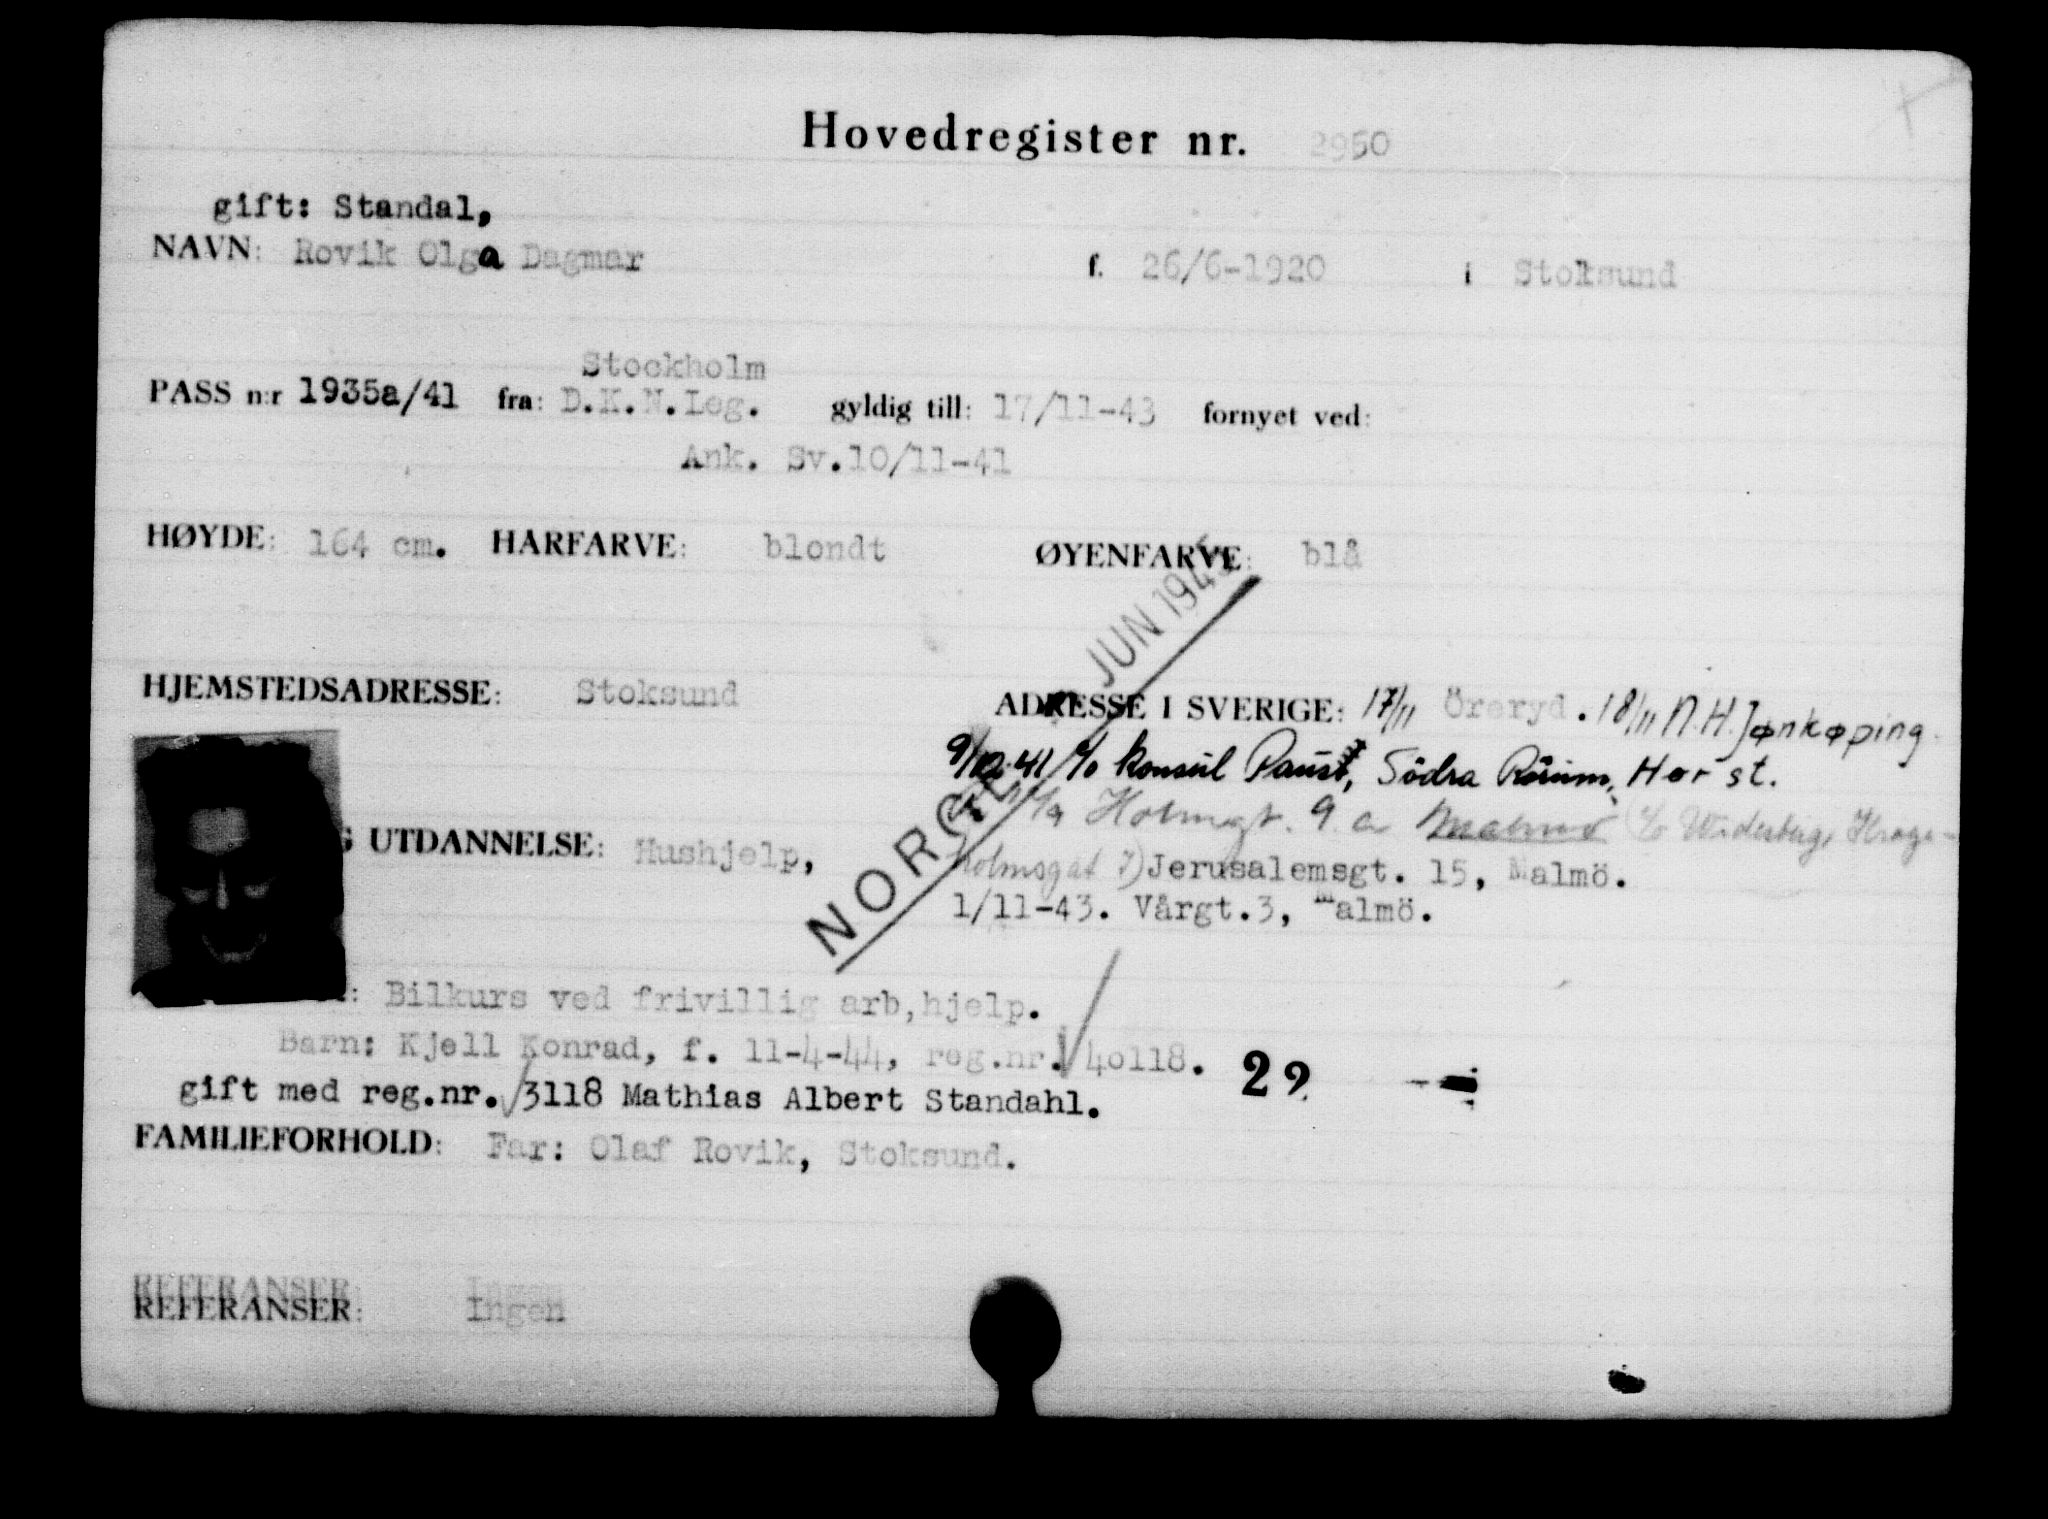 Hovedregister nr. 2950
gift: Standal,
NAVN: Rovik Olga Dagmar f. 26/6-1920 i Stoksund
Stockholm
PASS n:r 1935a/41 fra: D.K.N.Leg. gyldig till: 17/11-43 fornyet ved:
Ank. Sv.10/11-41
HØYDE: 164 cm. HÅRFARVE: blondt ØYENFARVE: blå
JUN 1945
HJEMSTEDSADRESSE: Stoksund ADRESSE I SVERIGE: 17/11 Öreryd. 18/11 N.H. Jønkøping.
9/12-41 c/o Konsul Paust, Södra Rörum, Hør st.
Holmgt. 9 a Malmö c/o
G UTDANNELSE: Hushjelp, holmsgat 7) Jerusalemsgt. 15, Malmö.
1/11-43. Vårgt.3, Malmö.
NORGE
: Bilkurs ved frivillig arb,hjelp.
Barn: Kjell Konrad, f. 11-4-44, reg.nr. 40118.
29
gift med reg.nr. 3118 Mathias Albert Standahl.
FAMILIEFORHOLD: Far: Olaf Rovik, Stoksund.
REFERANSER: Ingen
REFERANSER: Ingen